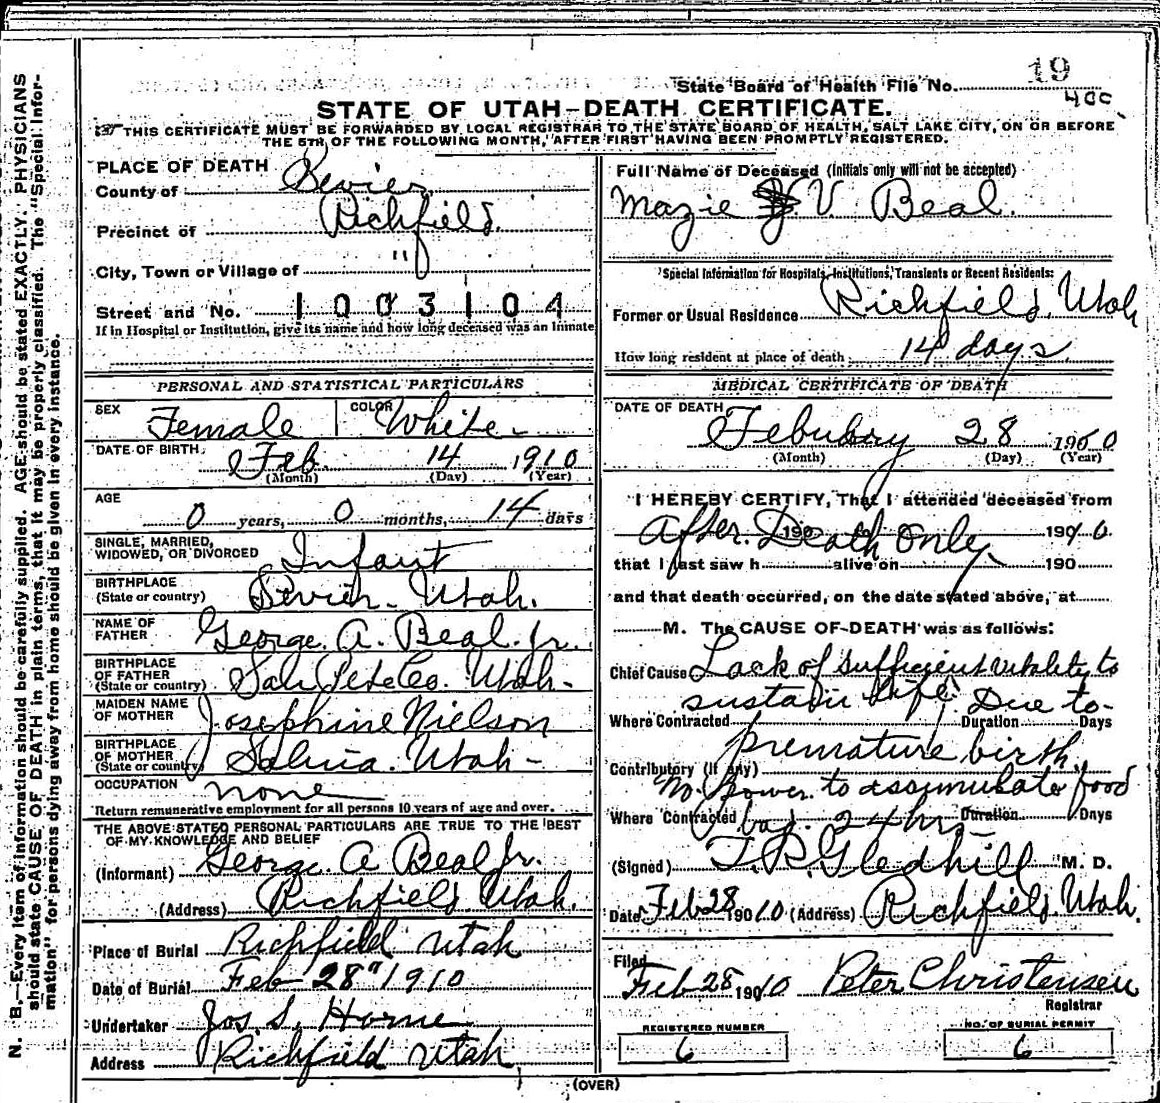 State Board of Health File No. 19
400
STATE OF UTAH—DEATH CERTIFICATE.
THIS CERTIFICATE MUST BE FORWARDED BY LOCAL REGISTRAR TO THE STATE BOARD OF HEALTH, SALT LAKE CITY, ON OR BEFORE
THE 5TH OF THE FOLLOWING MONTH, AFTER FIRST HAVING BEEN PROMPTLY REGISTERED.
PLACE OF DEATH
County of Sevier
Precinct of Richfield.
City, Town or Village of "
Street and No. 1003104
If in Hospital or Institution, give its name and how long deceased was an Inmate
PERSONAL AND STATISTICAL PARTICULARS
SEX Female COLOR White
DATE OF BIRTH Feb. 14 1910
(Month) (Day) (Year)
AGE
0 years, 0 months, 14 days
SINGLE, MARRIED,
WIDOWED, OR DIVORCED Infant
BIRTHPLACE
(State or country) Sevier. Utah.
NAME OF
FATHER George. A. Beal. Jr.
BIRTHPLACE
OF FATHER
(State or country) San Pete Co. Utah-
MAIDEN NAME
OF MOTHER Josephine Nielson
BIRTHPLACE
OF MOTHER
(State or country) Salina. Utah-
OCCUPATION none
Return remunerative employment for all persons 10 years of age and over.
THE ABOVE STATED PERSONAL PARTICULARS ARE TRUE TO THE BEST
OF MY KNOWLEDGE AND BELIEF
(Informant) George. A Beal Jr.
(Address) Richfield Utah.
Place of Burial Richfield Utah
Date of Burial Feb 28" 1910
Undertaker Jos. S. Horne
Address Richfield Utah
Full Name of Deceased (Initials only will not be accepted)
Mazie V. Beal.
Special Information for Hospitals, Institutions, Transients or Recent Residents:
Former or Usual Residence Richfield. Utah
How long resident at place of death 14 days
MEDICAL CERTIFICATE OF DEATH
DATE OF DEATH
Febuary 28 1910
(Month) (Day) (Year)
I HEREBY CERTIFY, That I attended deceased from
After. Death only 190 1910
that I last saw h alive on 190
and that death occurred, on the date stated above, at
M. The CAUSE OF DEATH was as follows:
Chief Cause Lack of sufficient vitality to
sustain life. Due to-
Where Contracted Duration Days
premature birth.
Contributory (if any)
No power to assimulate food
Where Contracted Duration Days
24 hrs
(Signed) T. R. Gledhill M. D.
Date Feb 28 1910 (Address) Richfield. Utah.
Filed
Feb 28 1910 Peter Christensen
Registrar
REGISTERED NUMBER
6
NO. OF BURIAL PERMIT
6
(OVER)
N. B.—Every item of information should be carefully supplied. AGE should be stated EXACTLY. PHYSICIANS
should state CAUSE OF DEATH in plain terms, that it may be properly classified. The "Special Infor-
mation" for persons dying away from home should be given in every instance.